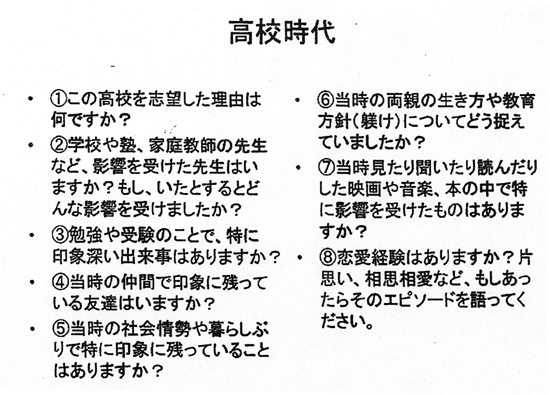 高校時代
・ ①この高校を志望した理由は
何ですか？
・ ②学校や塾、家庭教師の先生
など、影響を受けた先生はい
ますか？もし、いたとするとど
んな影響を受けましたか？
・ ③勉強や受験のことで、特に
印象深い出来事はありますか？
・ ④当時の仲間で印象に残って
いる友達はいますか？
・ ⑤当時の社会情勢や暮らしぶ
りで特に印象に残っていること
はありますか？
・ ⑥当時の両親の生き方や教育
方針（躾け）についてどう捉え
ていましたか？
・ ⑦当時見たり聞いたり読んだり
した映画や音楽、本の中で特
に影響を受けたものはありま
すか？
・ ⑧恋愛経験はありますか？片
思い、相思相愛など、もしあっ
たらそのエピソードを語ってく
ださい。